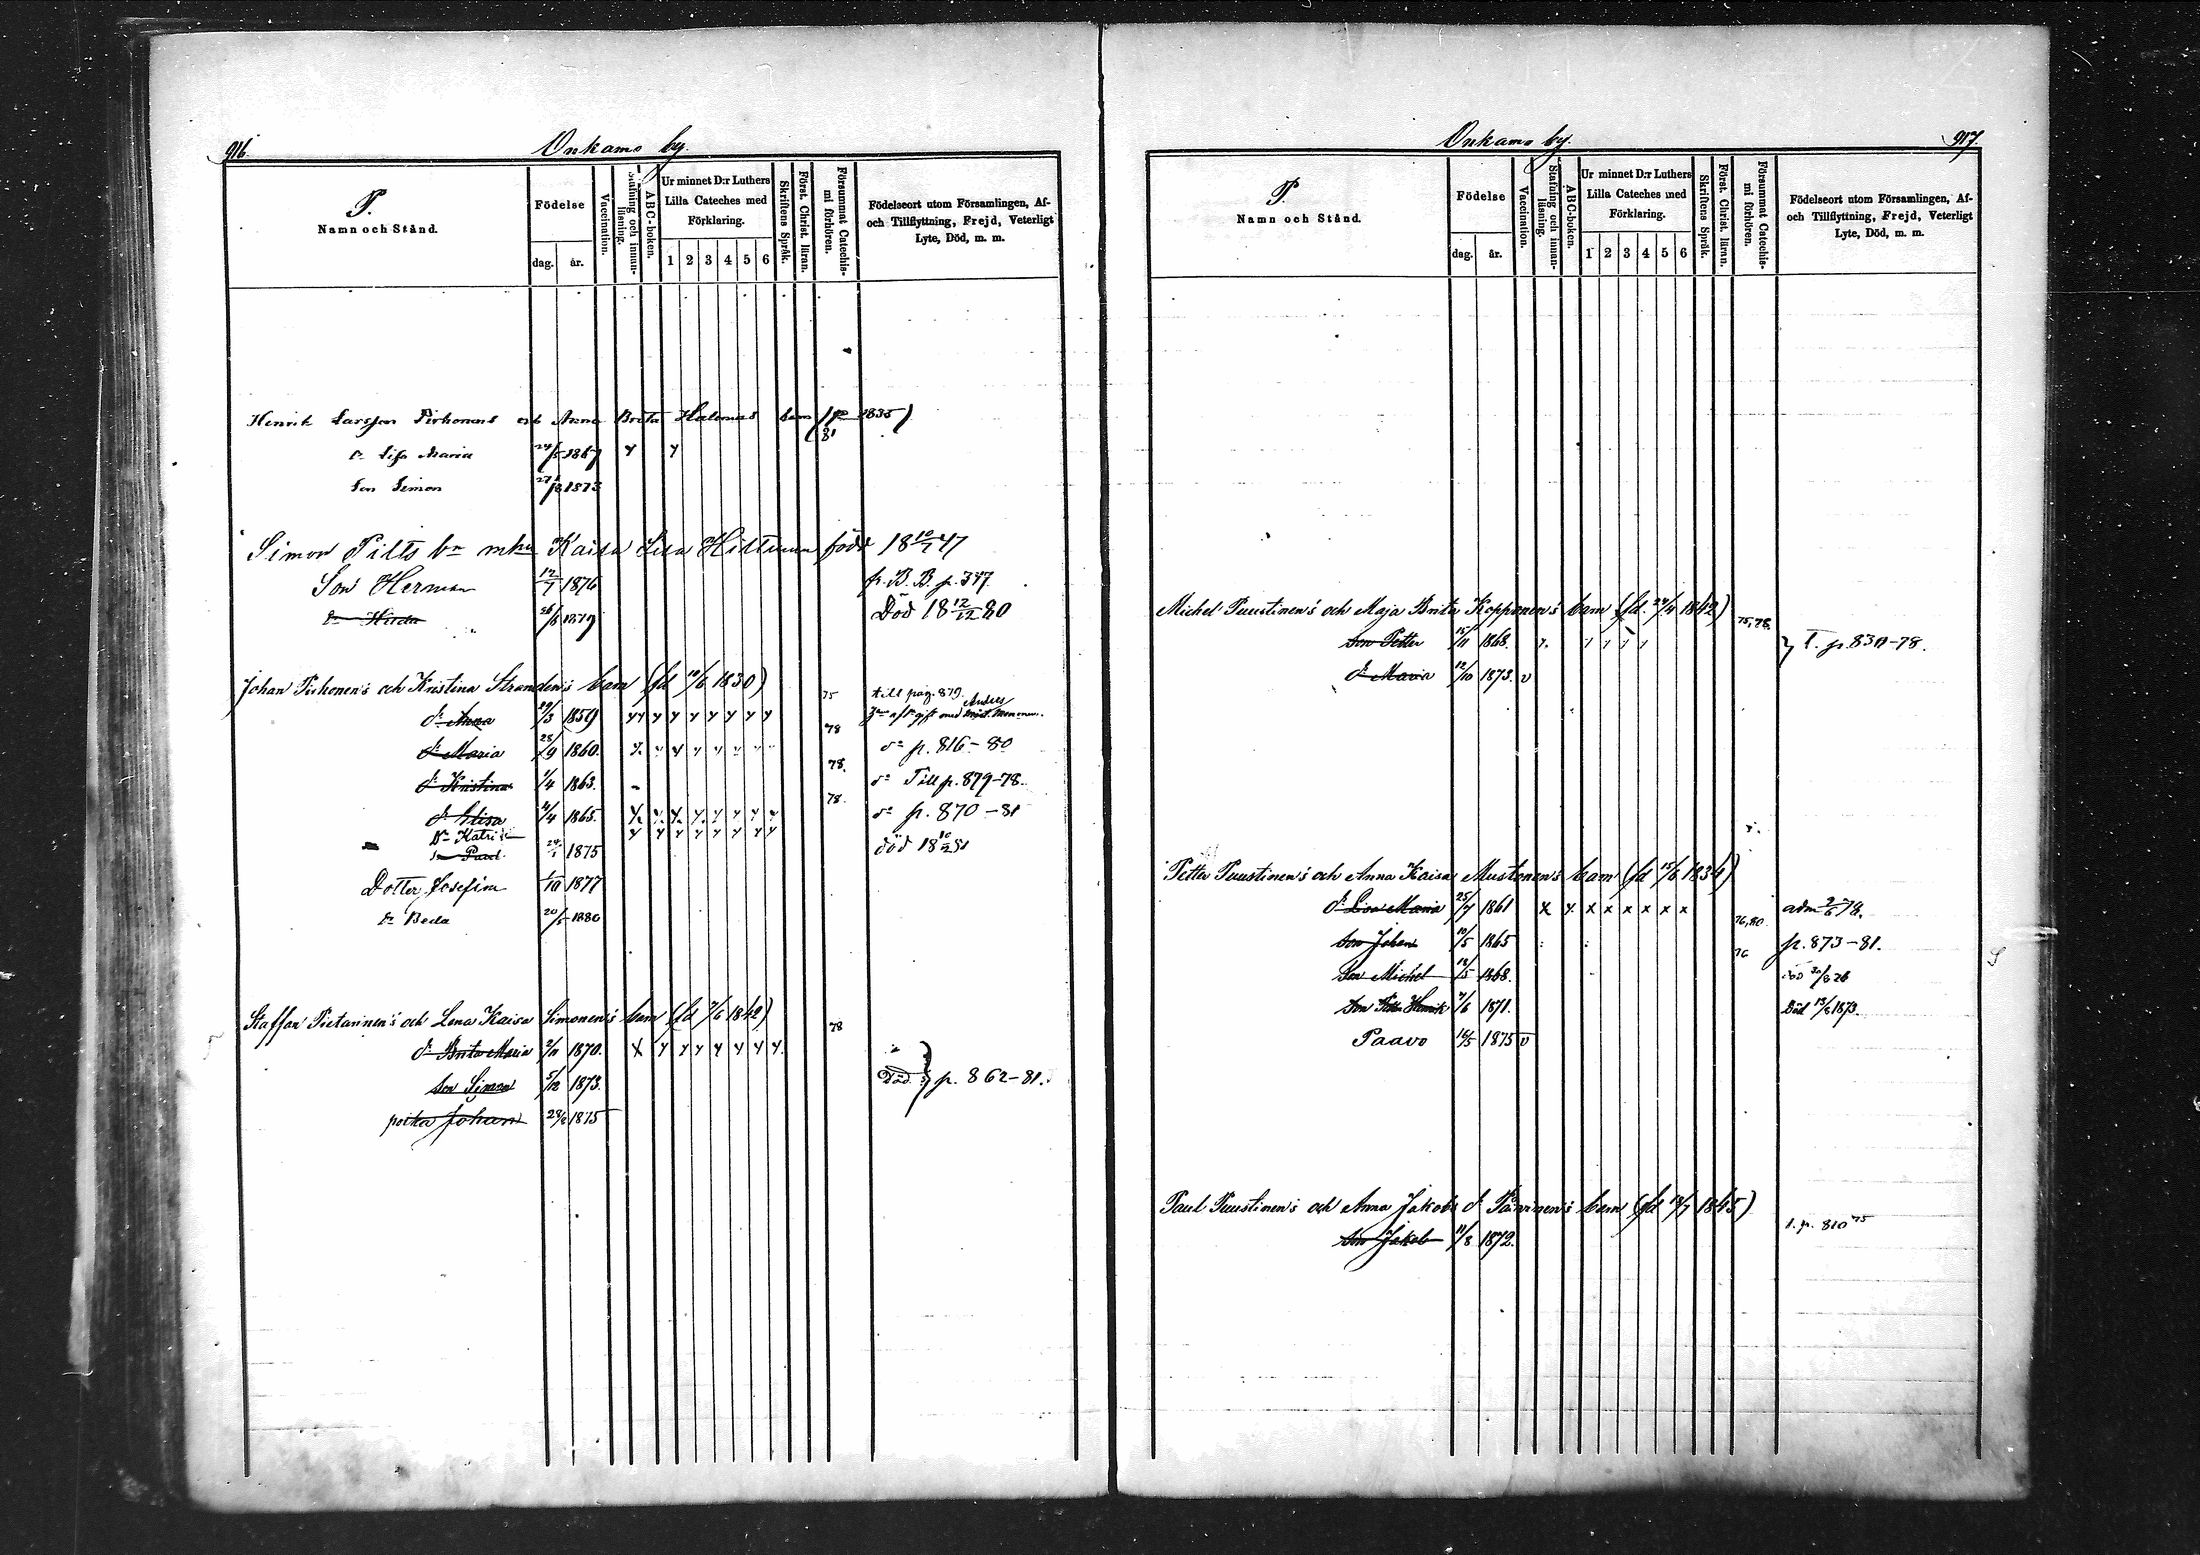 916. Onkamo by.
P.
Namn och Stånd.
Födelse
dag. år.
Vaccination.
Stafning och innan-läsning.
ABC-boken.
Ur minnet D:r Luthers
Lilla Cateches med
Förklaring.
1 2 3 4 5 6
Skriftens Språk.
Först. Christ. läran.
Försummat Catechis-mi förhören.
Födelseort utom Församlingen, Af-
och Tillflyttning, Frejd, Veterligt
Lyte, Död, m. m.
Henrik Larsson Pirhonens och Anna Brita barn 1835)
81
dr Lisa Maria 24/5 1867 y y
Son Simon 1873
Simon Pilts bn m hu Kaisa Lisa Hiltunen född 18 10/7 47
Son Herman 12/7 1876 fr. B. B. p. 347.
dr Hilda 26/8 1879 Död 18 12/12 80
Johan Pirhonen's och Kristina Stranden's barn (fd 10/6 1830) 75 till pag. 879.
dr Anna 29/3 1859 y y y y y y y y 78 gift med Anders
dr Maria 28/9 1860. 78. dr p. 816-80
dr Kristina 1/4 1863. 78. dr Till p. 879-78.
dr Elisa 4/4 1865. dr p. 870-81
Dr Katri y y y y y y y y
Paul. 24/1 1875 död 18 10/2 81
Dotter Josefina 1/10 1877
dr Beda 20/5 1880
Staffan Pietarinen's och Lena Kaisa Simonen's barn (fd 7/6 1842) 78
dr Brita Maria 2/11 1870. x y y y y y y y.
son Simon 5/12 1873. Död. } p. 862-81.
poika Johan 28/2 1875
Onkamo by. 917.
P.
Namn och Stånd.
Födelse
dag. år.
Vaccination.
Stafning och innan-läsning.
ABC-boken.
Ur minnet D:r Luthers
Lilla Cateches med
Förklaring.
1 2 3 4 5 6
Skriftens Språk.
Först. Christ. läran.
Försummat Catechis-mi förhören.
Födelseort utom Församlingen, Af-
och Tillflyttning, Frejd, Veterligt
Lyte, Död, m. m.
Michel Puustinen's och Maja Brita Kopponen's barn (fd. 24/4 1842) 75,78.
son Petter 15/11 1868. } T. p. 830-78.
dr Maria 12/10 1873. v
Petter Puustinen's och Anna Kaisa Mustonen's barn (fd 15/6 1834)
dr Lisa Maria 25/7 1861 x x x x x x x x 76,80 adm 2/6 78.
son Johan 10/5 1865 76 p. 873-81.
son Michel 18/5 1868.
son Petter Henrik 7/6 1871. Död 13/6 1873.
Paavo 16/5 1875 v
Paul Puustinen's och Anna Jakobs dr Päivinen's barn (fd 13/7 1845) t. p. 810 75
son Jakob 11/8 1872.